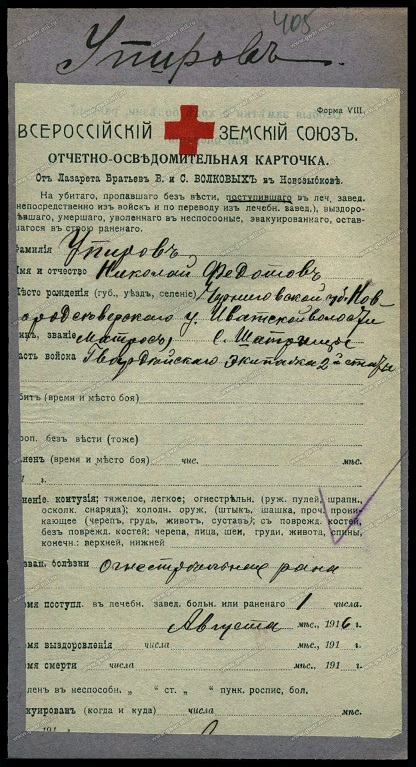 405
Упировъ.
Форма VIII.
ВСЕРОССІЙСКІЙ ЗЕМСКІЙ СОЮЗЪ.
ОТЧЕТНО-ОСВѢДОМИТЕЛЬНАЯ КАРТОЧКА.
Отъ Лазарета Братьевъ В. и С. ВОЛКОВЫХЪ въ Новозыбковѣ.
На убитаго, пропавшаго безъ вѣсти, поступившаго въ леч. завед.
непосредственно изъ войскъ и по переводу изъ лечебн. завед.), выздоро-
вѣвшаго, умершаго, уволеннаго въ неспособные, эвакуированнаго, остав-
шагося въ строю раненаго.
Фамилія Упировъ
Имя и отчество Николай Федотовъ
Мѣсто рожденія (губ., уѣздъ, селеніе) Черниговской губ. Нов-
городсѣверскаго у. Иватской волости
чинъ, званіе Матросъ, с. Шатрищи
часть войска Гвардейскаго экипажа 2й статьи
бить (время и мѣсто боя)
роп. безъ вѣсти (тоже)
ненъ (время и мѣсто боя) чис. мѣс.
1 г.
неніе, контузія; тяжелое, легкое; огнестрѣльн. (руж. пулей, шрапн.,
осколк. снаряда); холодн. оруж. (штыкъ, шашка, проч. прони-
кающее (черепъ, грудь, животъ, суставъ); съ поврежд. костей,
безъ поврежд. костей; черепа, лица, шеи, груди, живота, спины,
конечн.: верхней, нижней
зван. болѣзни огнестрѣльная рана
емя поступл. въ лечебн. завед. больн. или раненаго 1 числа.
Августа мѣс., 1916 г.
емя выздоровленія числа мѣс., 191 г.
емя смерти числа мѣс., 191 г.
ленъ въ неспособн. „ “ ст. „ “ пунк. роспис, бол.
куированъ (когда и куда) числа мѣс.
191 г.